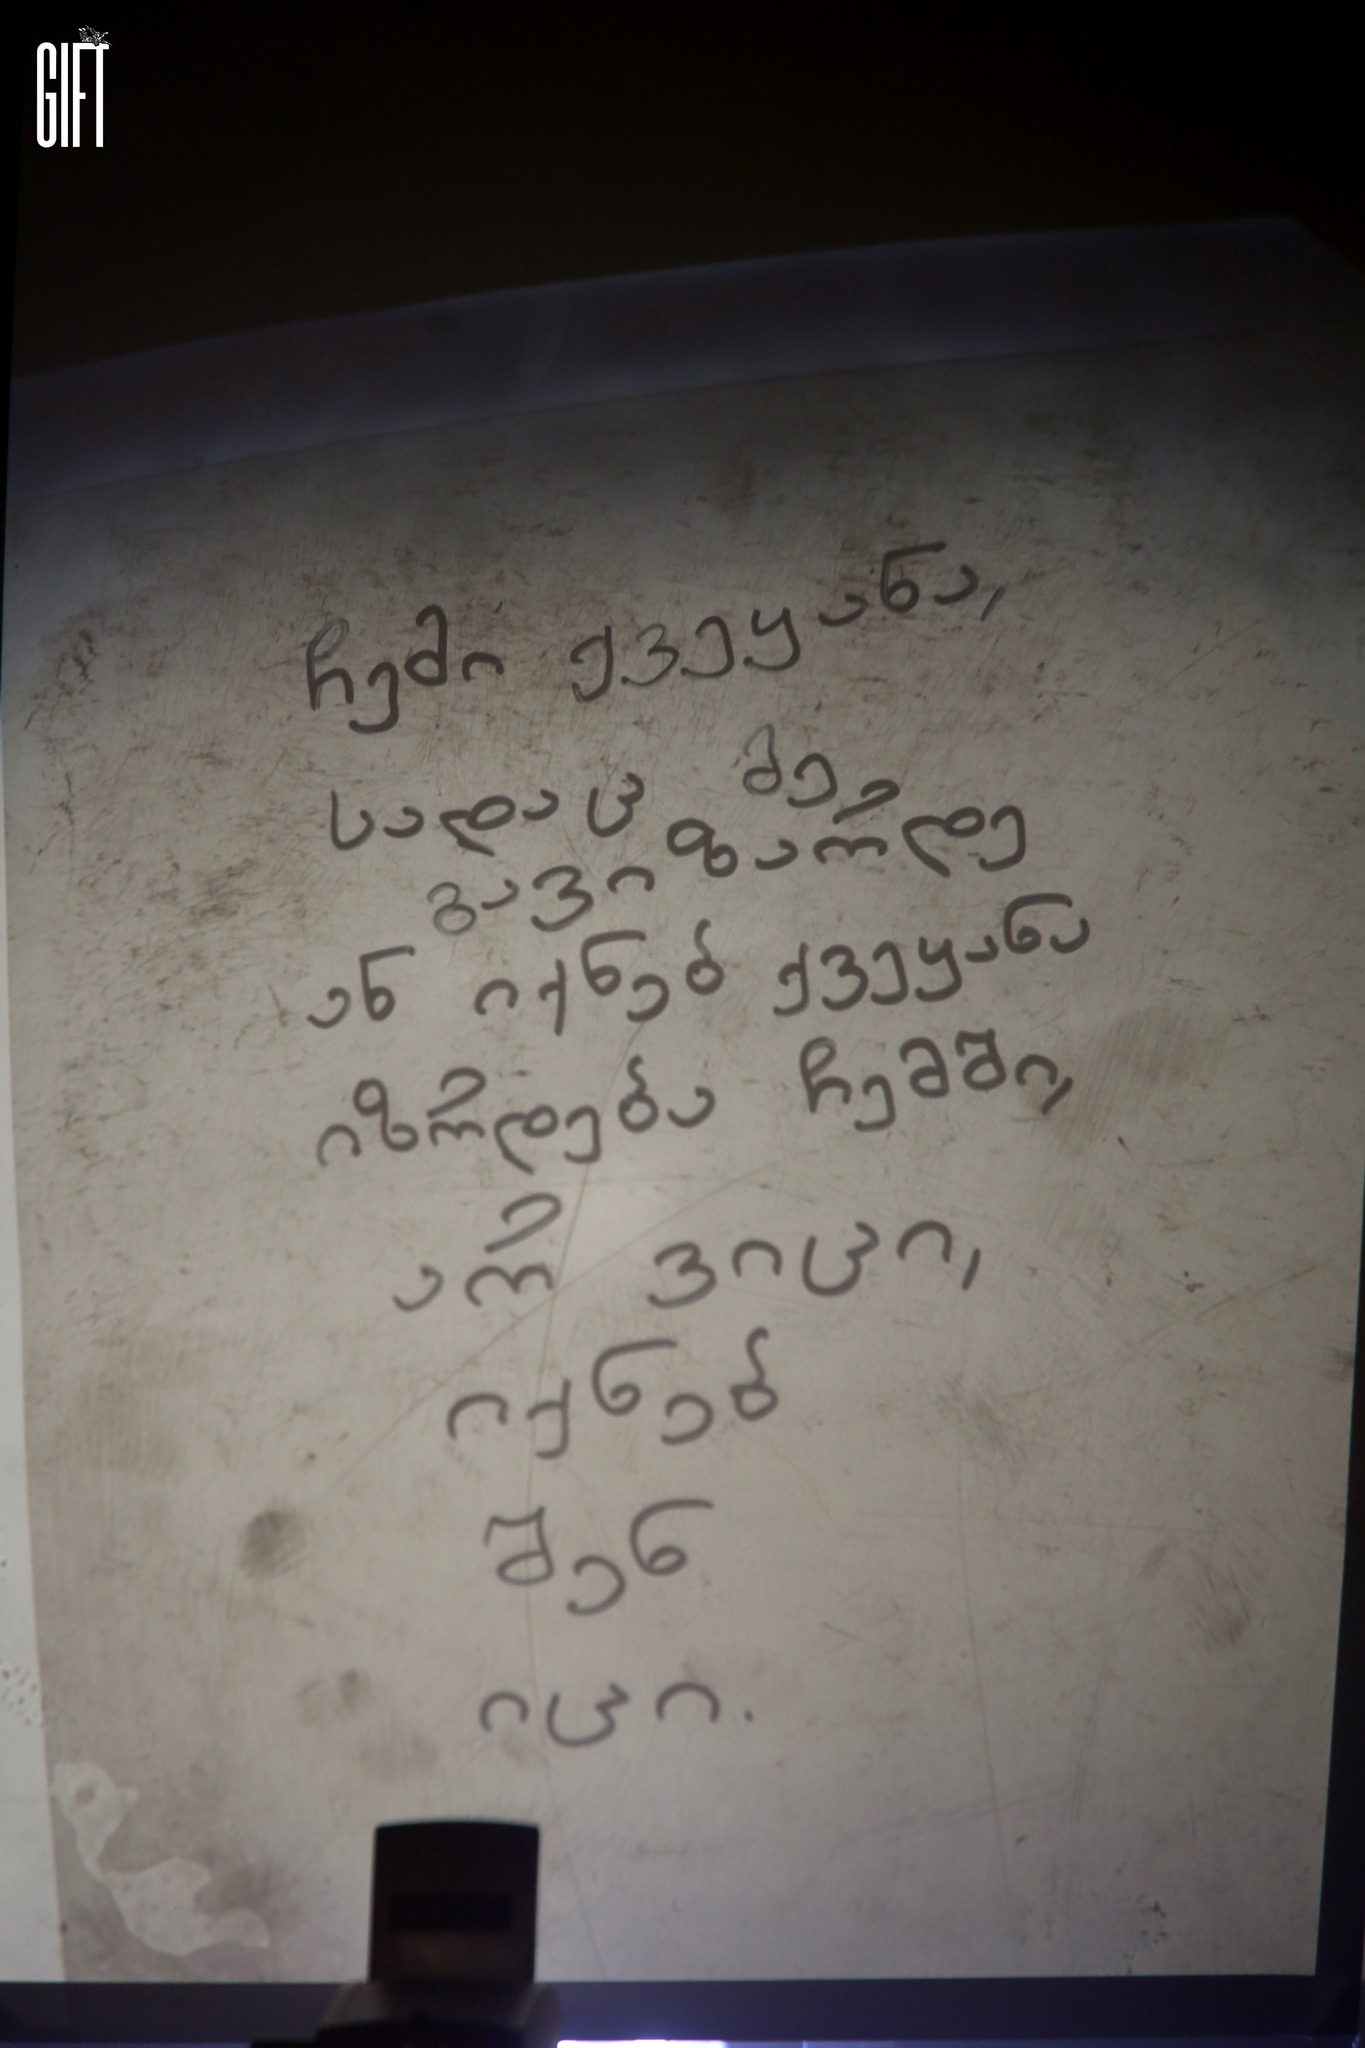 GIFT
ჩემი ქვეყანა,
სადაც მე
გავიზარდე
ან იქნებ ქვეყანა
იზრდება ჩემში,
არ ვიცი,
იქნებ
შენ
იცი.